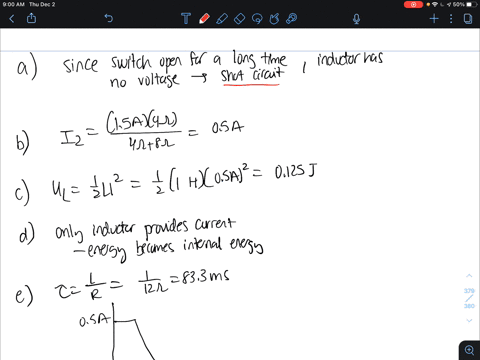 9:00 AM Thu Dec 2
50%
a) since switch open for a long time, inductor has
no voltage → short circuit
b) I2 = (1.5A)(4Ω) / 4Ω+8Ω = 0.5A
c) UL = 1/2 LI² = 1/2 (1 H)(0.5A)² = 0.125 J
d) only inductor provides current
— energy becomes internal energy
e) τ = L/R = 1/12Ω = 83.3 ms
0.5A
379
/
380